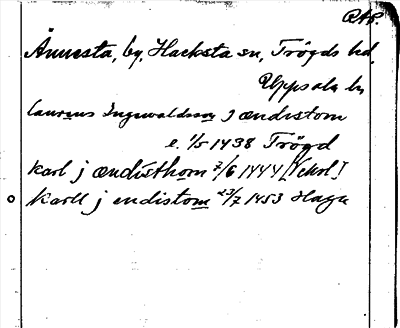 RAP.
Ännesta, by, Hacksta sn, Trögds hd,
Uppsala l.
laurens Ingewaldsson J ændistom
e. 1/5 1438 Trögd
karl j ændisthom 2/6 1444
karll j endistom 23/7 1453 Haga